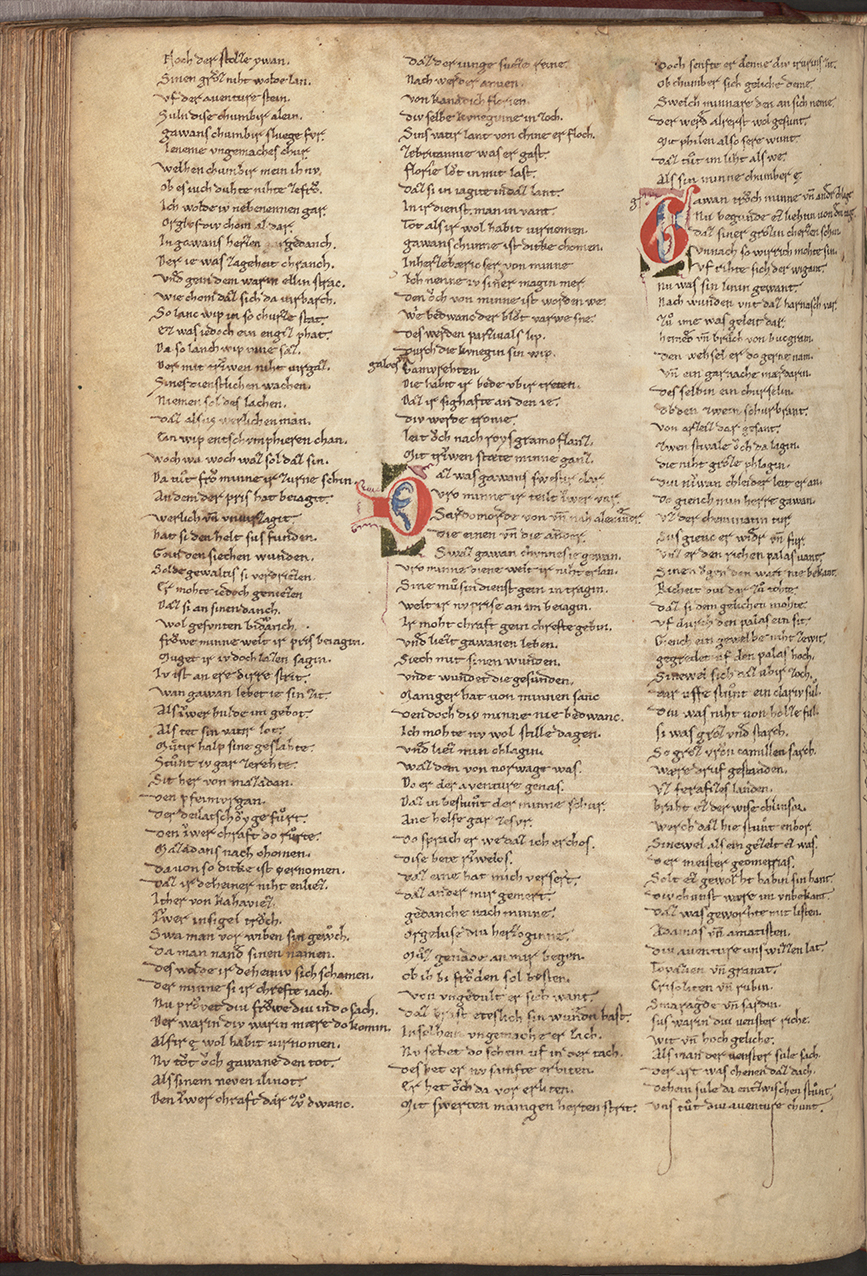 Noch der stolze ywan.
Sinen gvͦz niht wolde lan.
vf der aventure stein.
Svln dise chumbir alein.
gawans chumbir sluege fvr.
Leneme vngemaches chur.
Welhen chumbir mein ih nv.
ob es iuch duhte nihte zefrͦ.
Ich wolde iv nebenennen gar.
Orgelͦse iv chom al dar.
In gawans herzen gedanch.
Der ie was zageheit chranch.
Vnd gein dem warin ellin strac.
wie chom daz sich da virbarch.
So lanc wip in so churzze stat.
Ez was iedoch ein engiz phat.
Da so lanch wip inne saz.
Der mit triwen niht virgaz.
Sines dienstlichen wachen.
Niemen sol des lachen.
Daz alsus werlichen man.
Ein wip entschvmphieren chan.
woch wa woch waz sol daz sin.
Da tuͦt frͦ minne ir zurne schin.
An dem der pris hat beiagit.
werlich vn̄ vnvirzagit.
hat si den helt sus funden.
Goin den siechen wunden.
Solde gewaltis si verdriezen.
Er mohte iedoch geniezen
Daz si an sinen danch.
Wol gesvnten bidwanch.
frͦwe minne welt ir pris beiagin.
Muget ir iv doch lazen sagin.
Iv ist an ere dirre strit.
wan gawan lebet ie sin zit.
Als iwer hulde im gebot.
Als tet sin vatir lot.
Muͦtir halp sine geslahte.
Stuͦnt iv gar zerehte.
Sit her von mazadan.
Den pfeimvrgan.
Der delatschoͦye fuͦrt.
Den iwer chraft do ruͦrte.
Mazadans nach chomen.
Da von so dicke ist vernomen.
Daz ir deheiner niht enliez.
Ither von kahaviez.
Iwer insigel trͦch.
Swa man vor wiben sin gewͦch.
Da man nand sinen namen.
Des wolde ir deheiniv sich schamen.
Der minne si ir chrefte iach.
Nu prͦvet diu frͦwe diu in do sach.
Der warin div warin mere do komin.
Alsir e wol habit virnomen.
Nv toͦt ͦch gawane den tot.
Als sinem neven ilinot
Den iwer chraft dar zvͦ dwanc.
daz der iunge suͦzze reine.
Nach werder amien.
Von kanadich florien.
div selbe kvneginne in zoch.
Sins vatir lant von chine er floch.
Zebritannie was er gast.
florie lͦt in mit last.
Daz si in iagite in daz lant.
In ir dienst man in vant.
Tot als ir wol habit virnomen.
Gawans chunne ist dicke chomen.
In herzebære ser von minne
Ich nenne iv siner magin mer.
Den ͦch von minne ist worden we.
We bedwanc der blͦt varwe sne.
Des werden parzivals lip.
Durch die kvnegin sin wip.
galoes vn̄
Gamurehten.
Die habit ir bede vbir treten.
Daz ir sighafte an den re.
div werde itonie.
leit ͦch nach roys gramoflanz.
Mit triwen stæte minne ganz.
Daz was gawans swester clar
Vro minne ir teilt iwer var
Svrdomorde von vn̄ nah alexander.
Die einen vn̄ die ander.
Swaz gawan chvnnes ie gewan.
vro minne diene welt ir niht erlan.
Sine mu̔sin dienst gein iv tragin.
Welt ir nv prise an im beiagin.
Ir moht chraft gein chrefte gebin.
Vnd liezt gawanen leben.
Siech mit sinen wunden.
Vnde wundet die gesunden.
Maniger hat von minnen sanc
Den doch div minne nie bedwanc.
Ich mohte nv wol stille dagen.
Vnd liez min chlagin.
Waz dem von norwage was.
Do er der aventure genas.
Daz in bestuͦnt der minne schur.
Ane helfe gar zesvr.
do sprach er we daz ich erchos.
Dise bete rͦwelos.
Daz eine hat mich versert.
daz ander mir gemert.
gedanche nach minne.
Orgeluse diu herzoginne.
Muͦz genade an mir began.
Ob ih bi frͦden sol besten.
Von vngedult er sich want.
Daz brast eteslich sin wunden bast.
In solhem vngemache er lach.
Nv sehet do schein vf in der tach.
Des het er nv senfte erbiten.
Er het ͦch da vor erliten.
Mit swerten manigen herten strit.
Doch senfte er denne div rvowens zit.
Ob chumber sich geliche deme.
Swelch minnare den an sich neme.
Der werd alrerst wol gesunt.
Mit philen also sere wunt.
Daz tuͦt im liht als we.
Als sin minne chumber e.
Gawan trͦch minne vn̄ andir chlage
Nu begunde ez liehtin von dem tage
daz siner grͦzin cherzen schin.
vnnach so wirrich mohte sin.
vf rihte sich der wigant.
Nu was sin linin gewant.
Nach wunden vnt daz harnasch var.
Zuͦ ime was geleit dar.
hemde vn̄ bruͦch von bucgram.
Den wehsel er do gerne nam.
Vn̄ ein garnache mardarin.
Des selbin ein churselin.
ob den zwein schurbrant.
Von arsell dar gesant.
Zwen stivale ͦch da lagin.
die niht grͦze phlagin.
Diu niwan chleider leit er an.
Do giench min herre gawan.
Vz der cheminatin tur.
Sus gienc er widr vn̄ fur.
Vnz er den richen palas vant.
Sinen ͦgen den wart nie bekant
Richeit diu dar zuͦ tohte.
daz si dem gelichen mohte.
Vf durch den palas ein sit.
Giench ein gewelbe niht zewit.
gegredet vf den palas hoch.
Sinewel sich daz vbir zoch.
dar vffe stuͦnt ein clariv sul.
Diu was niht von holze ful.
si was grͦz vnd starch.
So grͦz vron camillen sarch.
Ware druf gestanden.
Vz ferafizes landen.
braht ez der wise clinsor.
Werch daz hie stuͦnt enbor.
Sinewel als ein gezelt ez was.
Der meister geometras.
Solt ez geworht habin sin hant.
Div chunst ware im vnbekant.
Daz was geworhte mit listen.
Adamas vn̄ amatisten.
Diu aventure uns wizzen lat.
Topazien vn̄ granat.
Crisoliten vn̄ rubin.
Smaragde vn̄ sardin.
sus warin diu venster riche.
Wit vn̄ hoch geliche.
Als man der venster sule sich.
Der art was obenen daz dach.
Dehein sule da entzwischen stuͦnt.
Vns tuͦt diu aventure chunt.